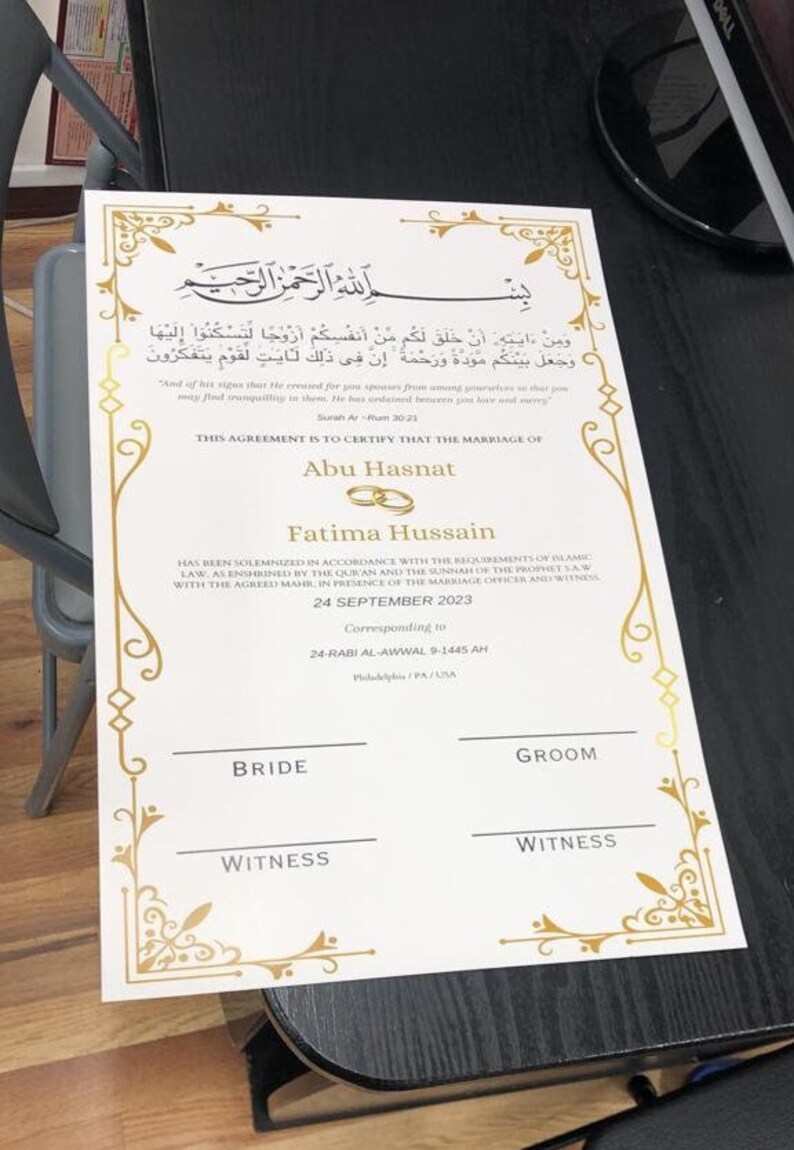 DELL
بِسْمِ اللهِ الرَّحْمٰنِ الرَّحِيْمِ
وَمِنْ ءَايَـٰتِهِۦٓ أَنْ خَلَقَ لَكُم مِّنْ أَنفُسِكُمْ أَزْوَٰجًا لِّتَسْكُنُوٓا۟ إِلَيْهَا
وَجَعَلَ بَيْنَكُم مَّوَدَّةً وَرَحْمَةً ۚ إِنَّ فِى ذَٰلِكَ لَـَٔايَـٰتٍ لِّقَوْمٍ يَتَفَكَّرُونَ
"And of his signs that He created for you spouses from among yourselves so that you
may find tranquillity in them. He has ordained between you love and mercy"
Surah Ar ~Rum 30:21
THIS AGREEMENT IS TO CERTIFY THAT THE MARRIAGE OF
Abu Hasnat
Fatima Hussain
HAS BEEN SOLEMNIZED IN ACCORDANCE WITH THE REQUIREMENTS OF ISLAMIC
LAW, AS ENSHRINED BY THE QUR'AN AND THE SUNNAH OF THE PROPHET S.A.W
WITH THE AGREED MAHR, IN PRESENCE OF THE MARRIAGE OFFICER AND WITNESS.
24 SEPTEMBER 2023
Corresponding to
24-RABI AL-AWWAL 9-1445 AH
Philadelphia / PA / USA
BRIDE
GROOM
WITNESS
WITNESS